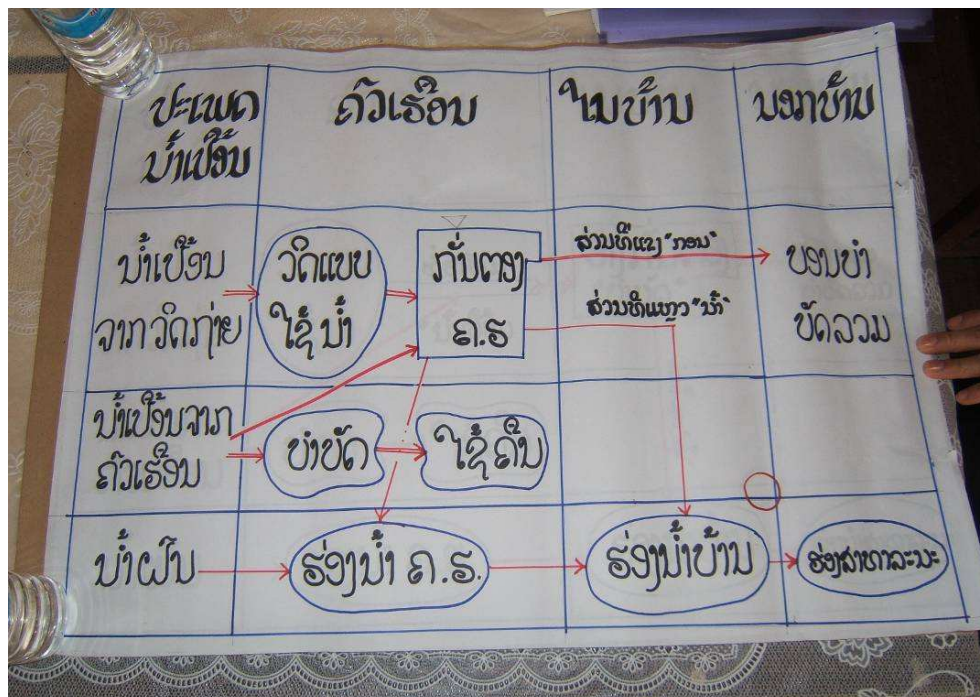 ປະເພດ
ນ້ຳເປື້ອນ
ຄົວເຮືອນ
ໃນບ້ານ
ນອກບ້ານ
ນ້ຳເປື້ອນ
ຈາກວິດຖ່າຍ
ວິດແບບ
ໃຊ້ນ້ຳ
ກັ່ນຕອງ
ຄ.ຮ
ສ່ວນທີ່ແຂງ "ກອນ"
ສ່ວນທີ່ແຫຼວ "ນ້ຳ"
ບໍາ
ບັດລວມ
ນ້ຳເປື້ອນຈາກ
ຄົວເຮືອນ
ບຳບັດ
ໃຊ້ຄືນ
ນ້ຳຝົນ
ຮ່ອງນ້ຳ ຄ.ຮ.
ຮ່ອງນ້ຳບ້ານ
ຮ່ອງສາທາລະນະ